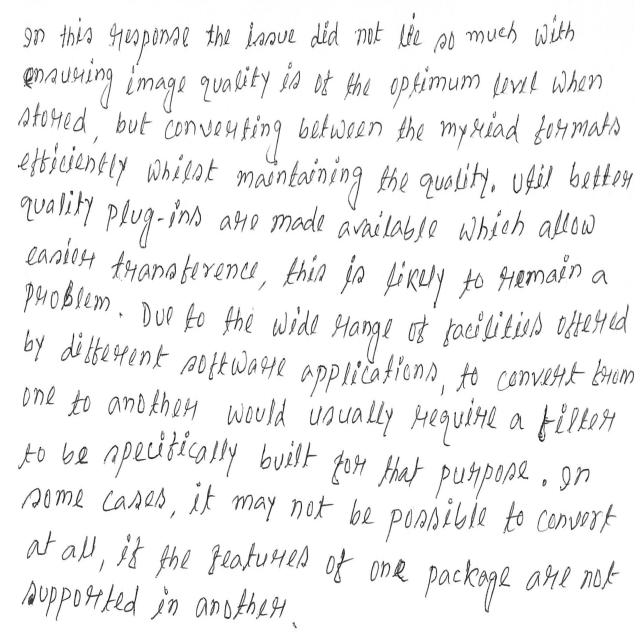 In this response the issue did not lie so much with
ensuring image quality is of the optimum level when
stored, but converting between the myriad formats
efficiently whilst maintaining the quality. Util better
quality plug-ins are made available which allow
easier transference, this is likely to remain a
problem. Due to the wide range of facilities offered
by different software applications, to convert from
one to another would usually require a filter
to be specifically built for that purpose. In
some cases, it may not be possible to convert
at all, if the features of one package are not
supported in another.